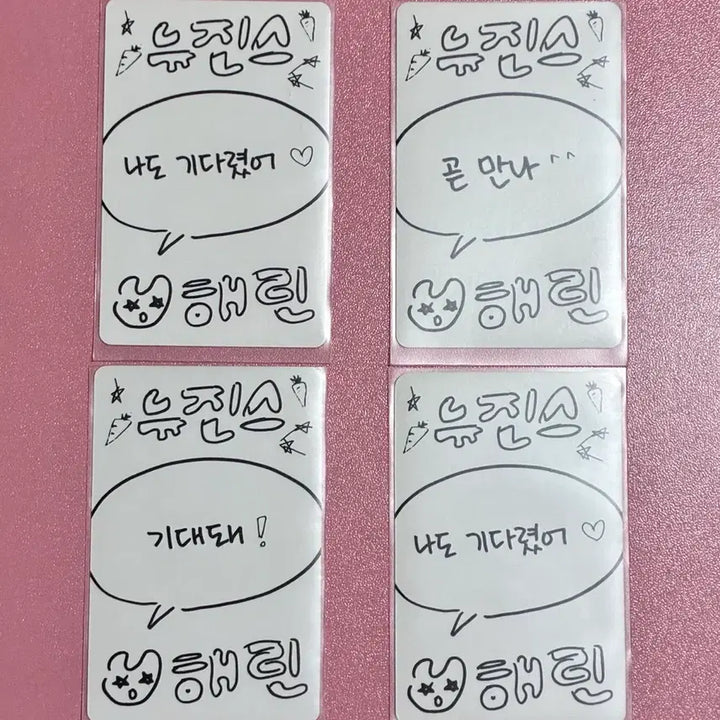 뉴진스
나도 기다렸어 ♡
해린
뉴진스
곧 만나 ^^
해린
뉴진스
기대돼!
해린
뉴진스
나도 기다렸어 ♡
해린